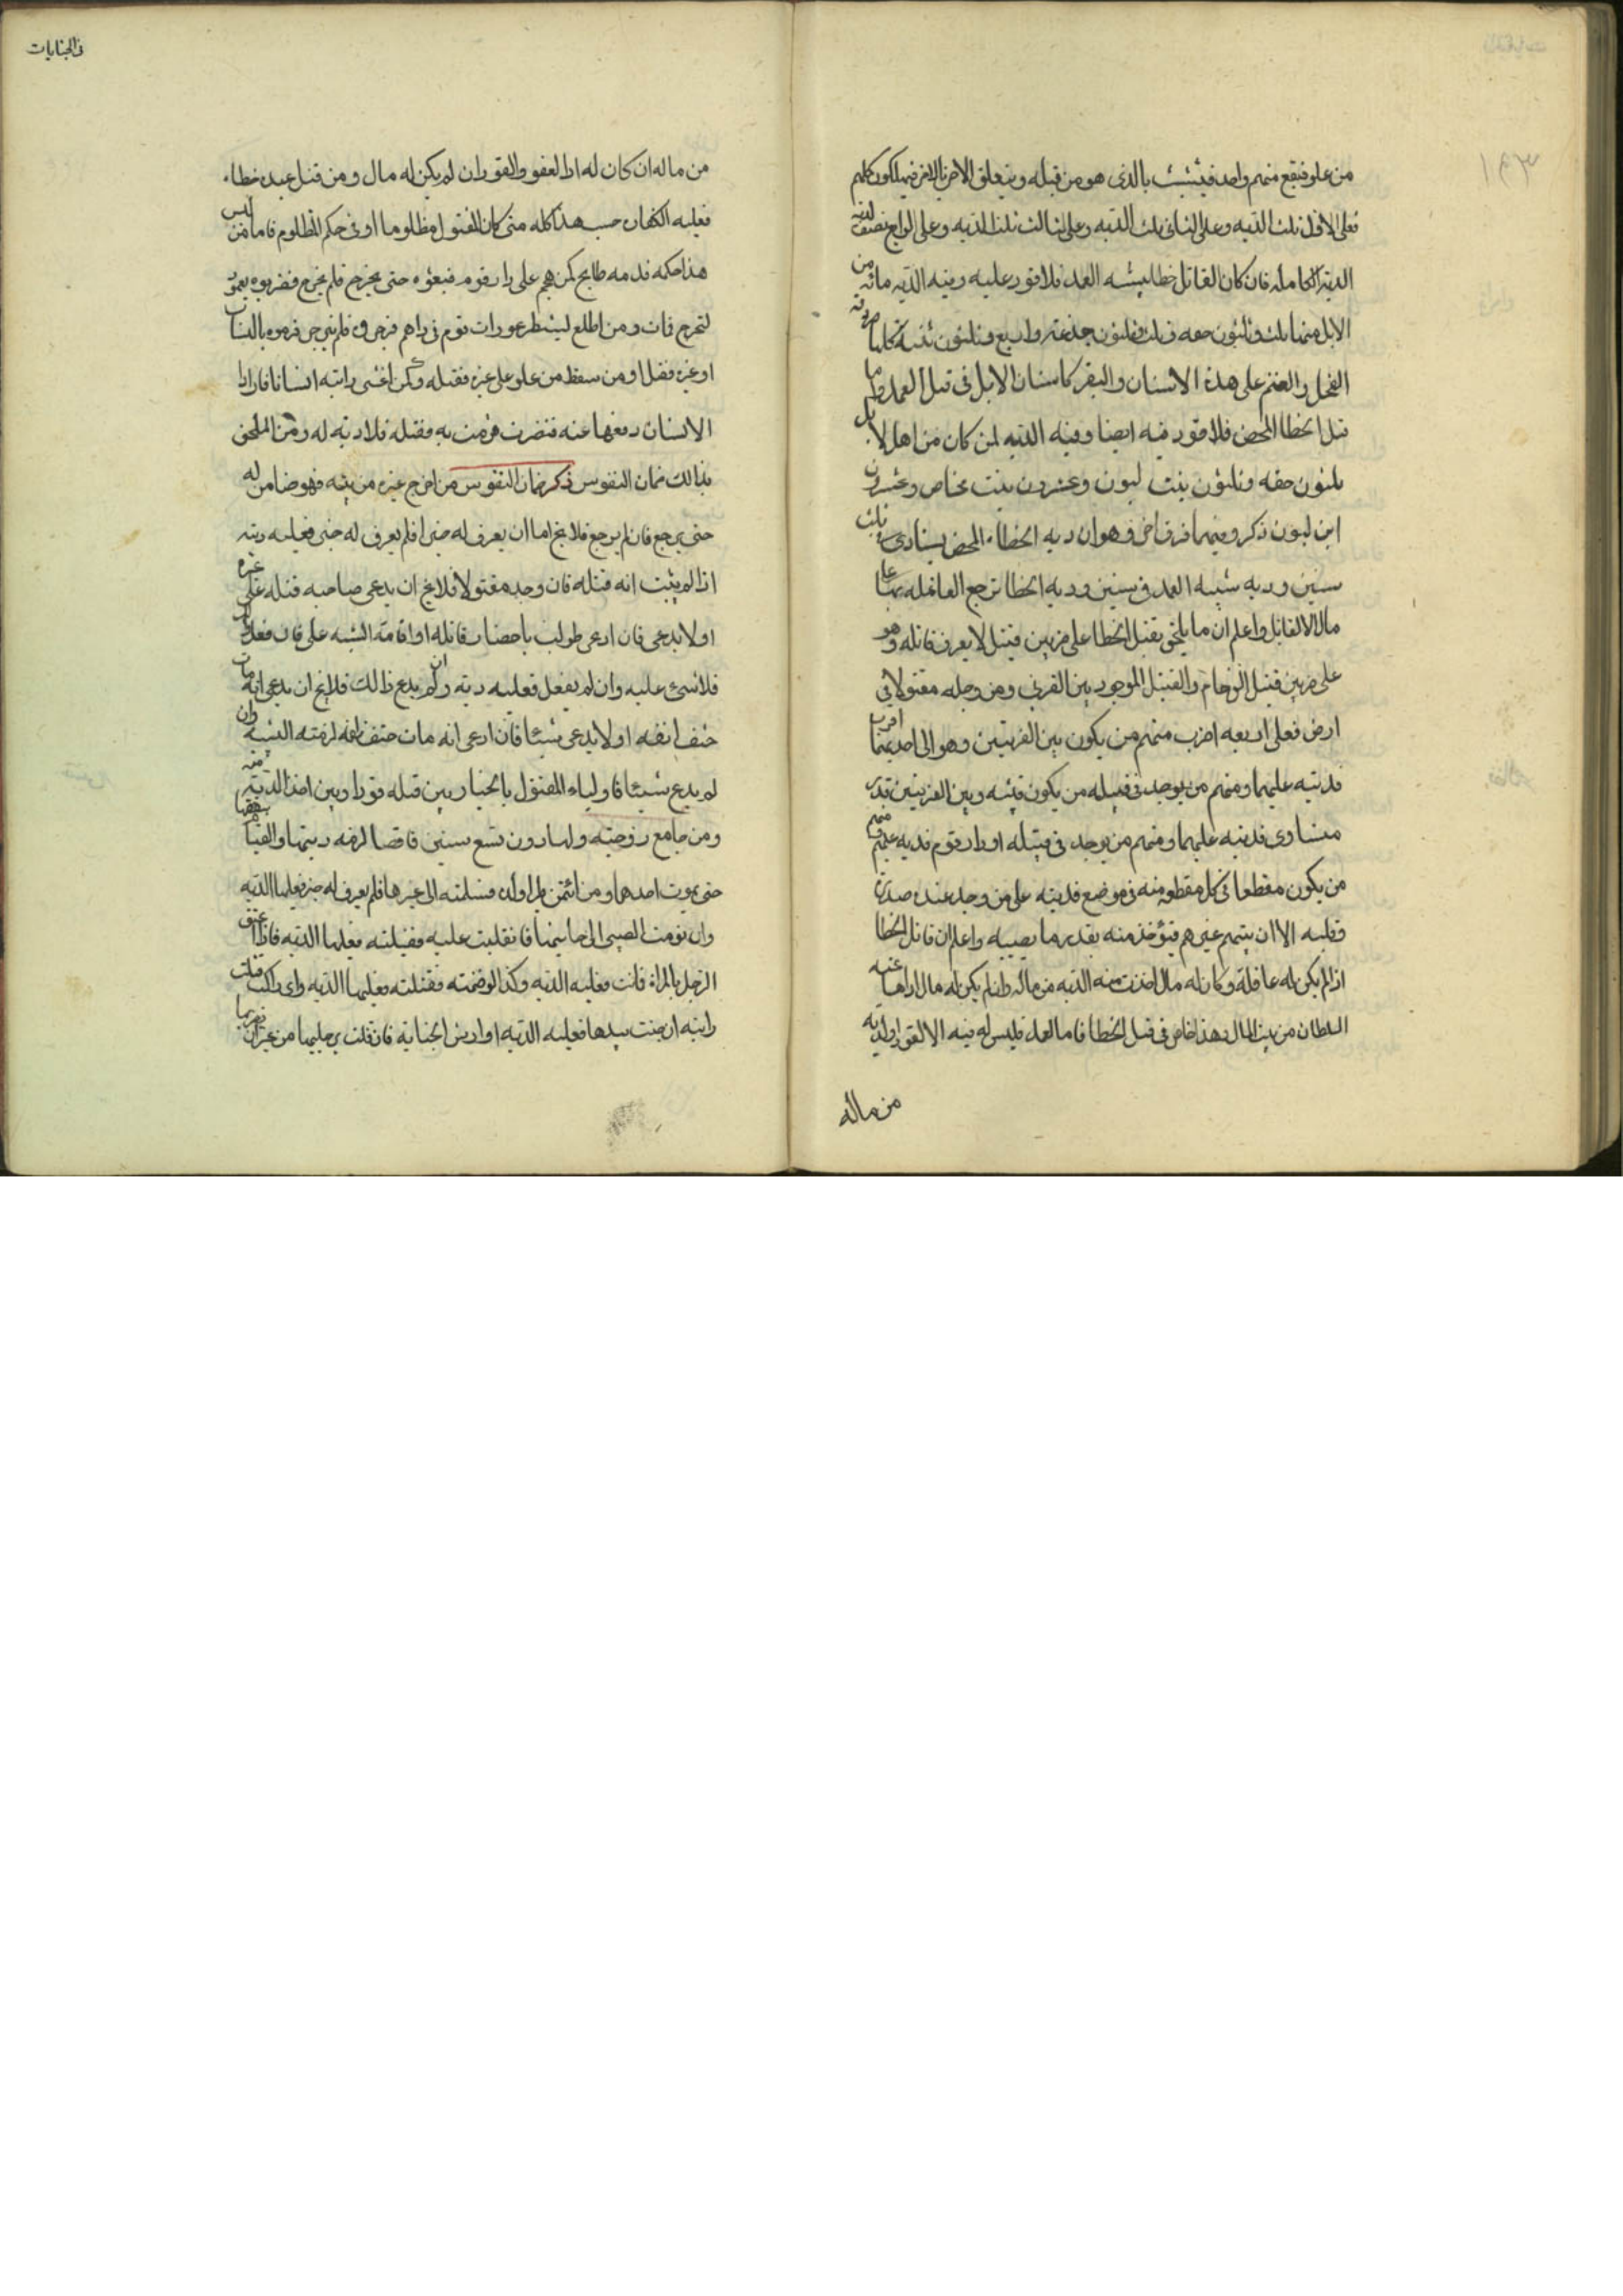 من علو فيقع منهم واحد فيتشبث بالذى هو من قبله ويتعلق الاخر بالاخر فيهلكون كلهم
فعلى الاول ثلث الديه وعلى الثانى ثلث الديه وعلى الثالث ثلثا الديه وعلى الرابع نصف الديه
الدية الكاملة فان كان القاتل خطا يشبه العمد فلا قود عليه وفيه الديه مائة من
الابل منها ثلث وثلثون حقه وثلث وثلثون جذعة واربع وثلثون ثنيه كلها طروقة
الفحل والغنم على هذه الاسنان والبقر كاسنان الابل فى قتل العمد واما
قتل الخطا المحض فلا قود فيه ايضا وفيه الديه لمن كان من اهل الابل
ثلثون حقه وثلثون بنت لبون وعشرون بنت مخاض وعشرون
ابن لبون ذكر وفيهما فرق اخر وهو ان ديه الخطاء المحض يستادى ثلث
سنين وديه شبيه العمد فى سنين وديه الخطا ترجع العاقله بها على
مال القاتل واعلم ان ما يلحق بقتل الخطا على ضربين قتيل لا يعرف قاتله وهو
على ضربين قتيل الزحام والقتيل الموجود بين القرى ومن وجد مقتولا فى
ارض فعلى اربعه اضرب منهم من يكون بين القريتين وهو الى احديهما اقرب
فديته عليهما ومنهم من يوجد فى قبيله من يكون فيه وبين القريتين قدر
متساوى فديته عليهما ومنهم من يوجد فى قبيله او دار قوم فديه عليهم ومنهم
من يكون مقطعا فى كل مقطع منه فى موضع فديته على من وجد عنده صدره
وقلبه الا ان يتهم غيرهم فيؤخذ منه بقدر ما يصيبه واعلم ان قاتل الخطا
اذا لم يكن له عاقلة وكان له مال اخذت منه الديه من ماله وان لم يكن له مال اداها عنه
السلطان من بيت المال وهذا خاص فى قتل الخطا فاما العمد فليس له فيه الا القود او الديه
من ماله
فى الجنايات
من ماله ان كان له او العفو والقود ان لم يكن له مال ومن قتل عبده خطاء
فعليه الكفارة حسب هذا كله متى كان المقتول مظلوما او فى حكم المظلوم فاما من ليس
هذا حكمه فدمه طايح كمن هجم على دار قوم فمنعوه حتى يخرج فلم يخرج فضربوه بعمود
ليخرج فمات ومن اطلع لينظر عورات قوم فى دارهم فزجروه فلم ينزجر فرموه بالنشاب
او غيره فقتل او من سقط من علو على غيره فقتله وكمن اغشى دابته انسانا فاراد
الانسان دفعها عنه فنفرت فرمت به فقتله فلا ديه له ومن الملحق
بذالك ضمان النفوس ذكر ضمان النفوس من اخرج غيره من بيته فهو ضامن له
حتى يرجع فان لم يرجع فلا يخ اما ان يعرف له خبر او لم يعرف له خبر فعليه ديته
اذا لم يثبت انه قتله فان وجد مقتولا فلا يخ ان يدعى صاحبه قتله على غيره
او لا يدعى فان ادعى طولب باحضار قاتله او اقامة البينه على فان فعل
فلا شىء عليه وان لم يفعل فعليه ديه وان لم يدع ذالك فلا يخ ان يدعى انه مات
حتف انفه او لا يدعى شيئا فان ادعى انه مات حتف انفه لزمته البينه وان
لم يدع شيئا فاولياء المقتول بالخيار بين قتله قودا وبين اخذ الديه منه
ومن جامع زوجته ولها دون تسع سنين فافضا لزمه ديتها والقيام بنفقتها
حتى يموت احدهما ومن ائتمن ظئرا ولده فسلمته الى غيرها فلم يعرف له خبر فعليها الديه
وان نومت الصبى الى جانبها فانقلبت عليه فقتلته فعليها الديه فاذا عنق
الرجل بالمراة فماتت فعليه الديه وكذا لو ضمته فقتلته فعليها الديه واى راكب قتلت
دابته ان جنت بيدها فعليه الديه او ارش الجناية فان قتلت برجليها من غير ان يضربها